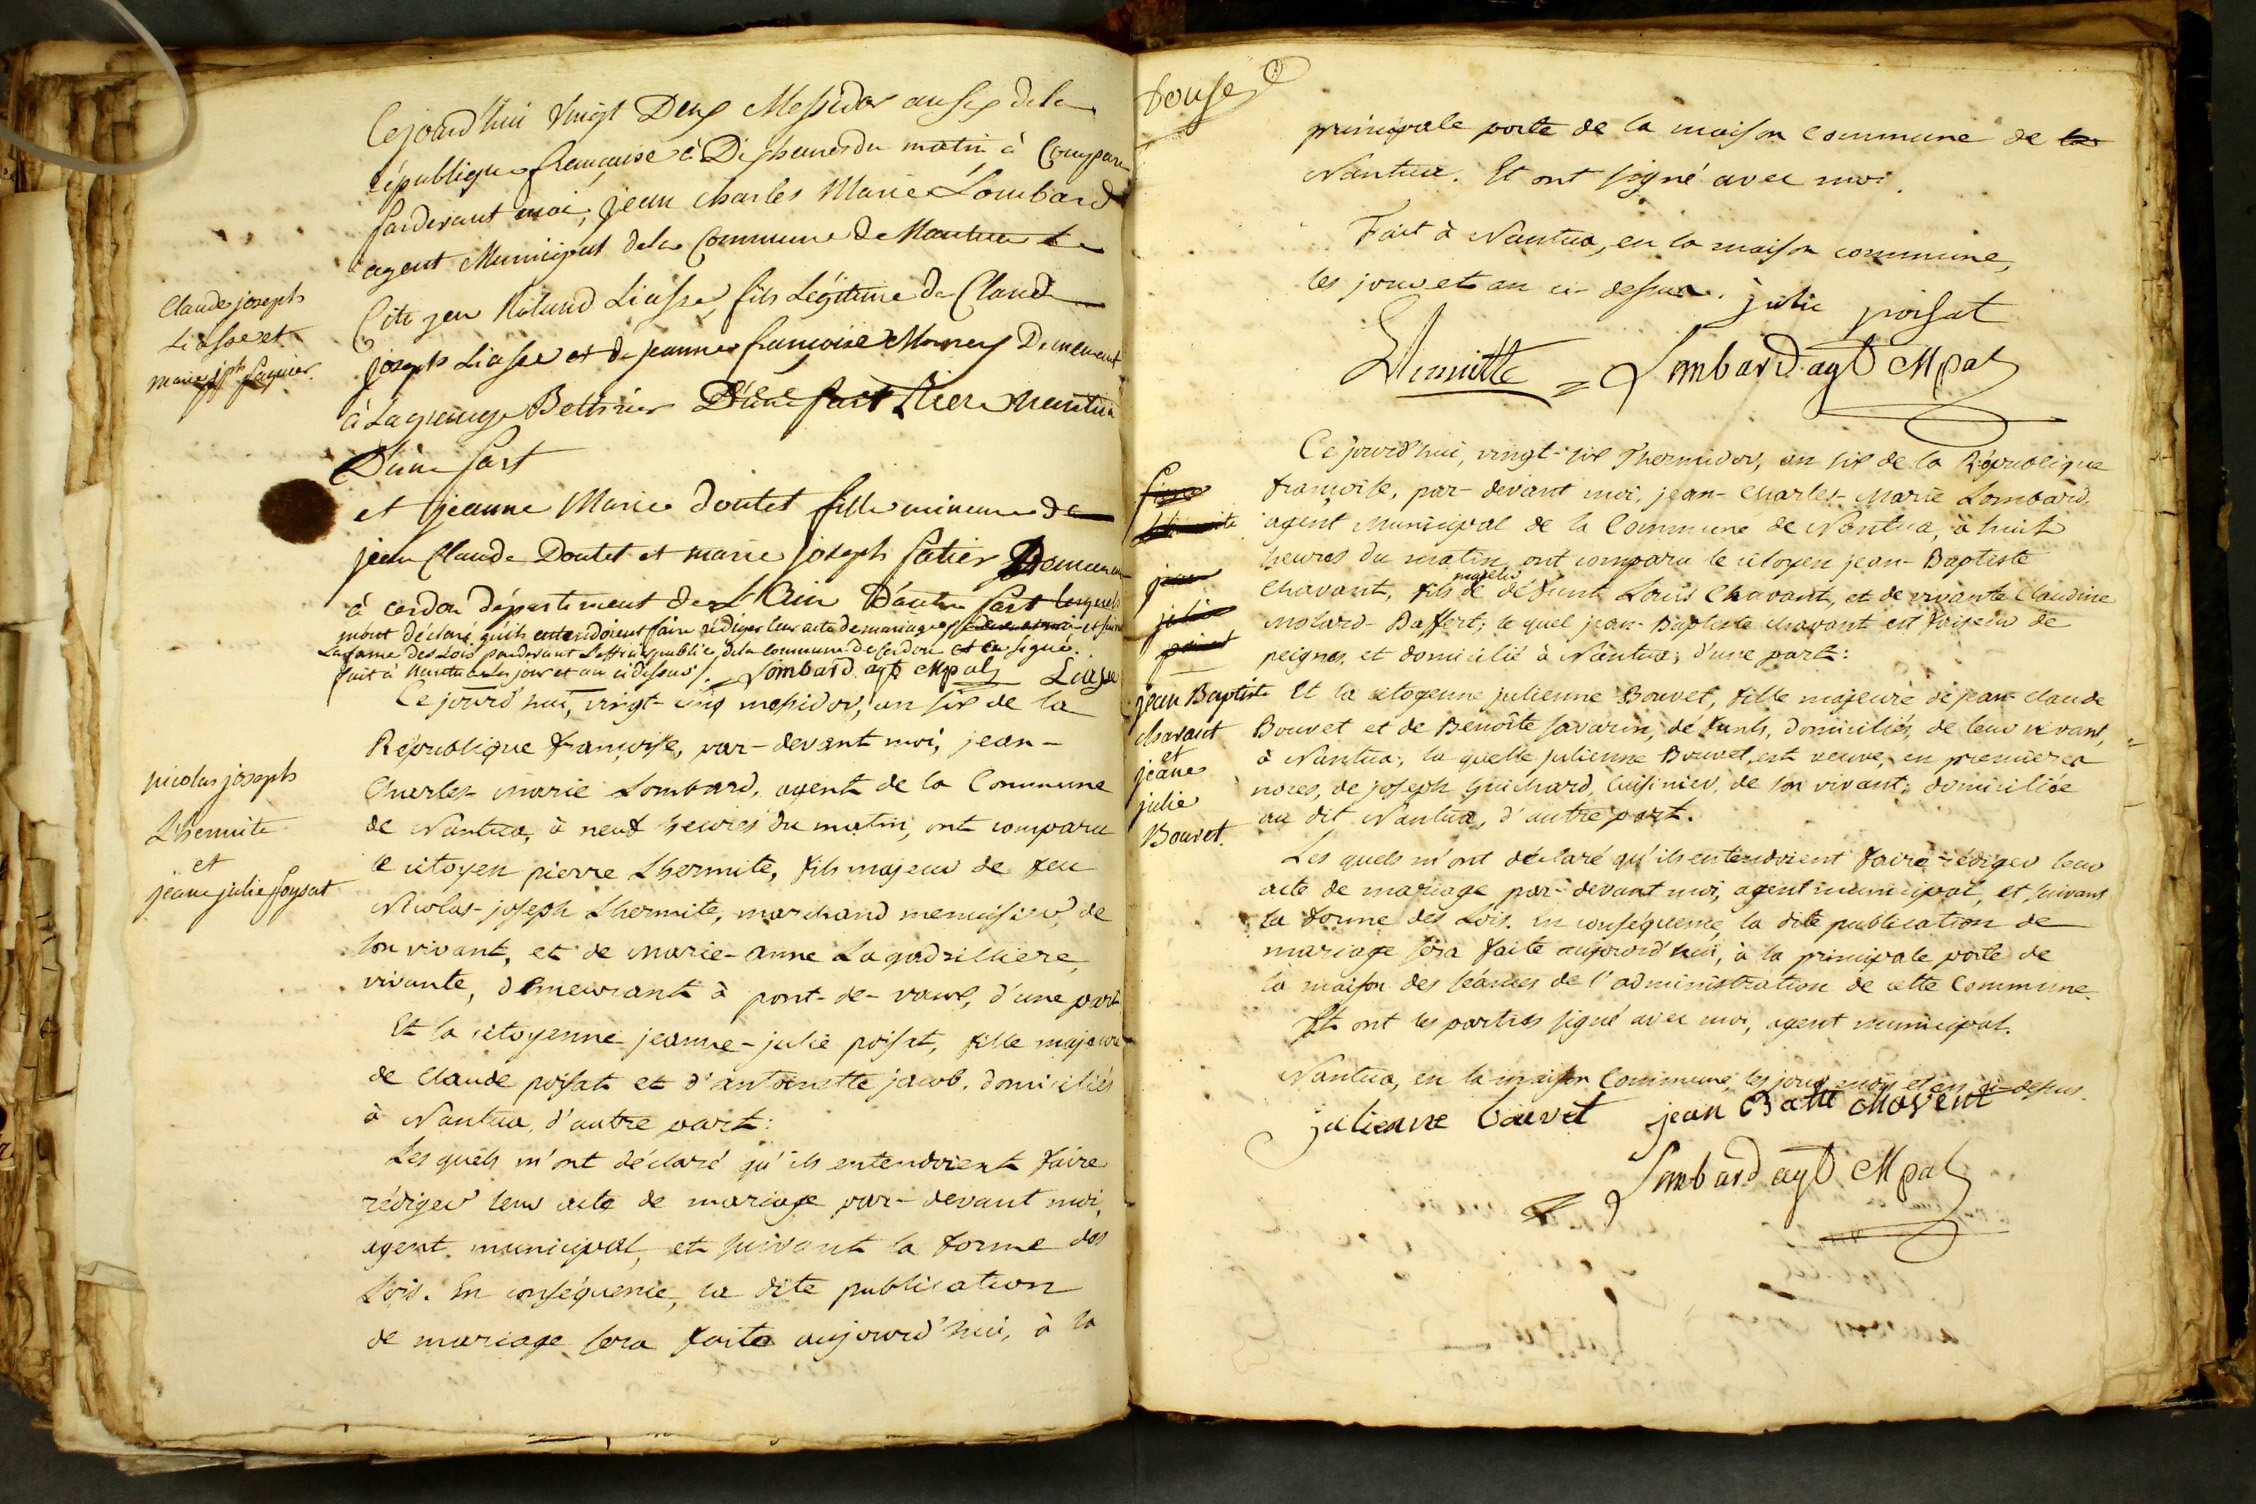 Cejourd'hui Vingt Deux Messidor an six de la
république francaise à Dix heures du matin à Compare
pardevant moi, jean charles Marie Lombard
agent Municipal dela Commune de Nantua le
Citoyen Roland Liasse, fils Légitime de Claude
joseph Liasse et de jeanne francoise Demeurant
à Lagrange D'une part
D'une part
et jeanne Marie Doutet fille mineure de
jean Claude Doutet et marie joseph Demeurant
à cerdon département de L'Ain D'autre part lesquels
m'ont déclaré qu'ils entendoient faire rédiger leur acte de mariage et suivant
La forme des Lois pardevant L'officier public dela commune de Cerdon et a signé.
fait à Nantua Les jour et an ci dessus /. Lombard agt Mpal Liasse
Claude joseph
Liasse et
marie jph
Ce jourd'hui, vingt-cinq messidor, an six de la
République françoise, par-devant moi, jean-
Charles-marie Lombard, agent de la Commune
de Nantua, à neuf heures du matin, ont comparu
le citoyen pierre Lhermite, fils majeur de feu
Nicolas-joseph Lhermite, marchand menuisier, de
son vivant, et de marie-anne Lagodrilliere,
vivante, demeurant à pont-de-vaux, d'une part
Et la citoyenne jeanne-julie poisat, fille majeure
de claude poisat et d'antoinette jacob, domiciliés
à Nantua, d'autre part:
Les quels m'ont déclaré qu'ils entendoient faire
rédiger leur acte de mariage par-devant moi,
agent municipal, et suivant la forme des
Lois. En conséquence, la dite publication
de mariage sera faite aujourd'hui, à la
nicolas joseph
Lhermite
et
jeane julie poysat
Douze
principale porte de la maison commune de la
Nantua. Et ont signé avec moi.
Fait à Nantua, en la maison commune,
les jour et an ci-dessus. julie poisat
Lhermitte = Lombard agt Mpal
Ce jourd'hui, vingt-six Thermidor, an six de la République
françoise, par-devant moi, jean-charles-marie Lombard,
agent municipal de la Commune de Nantua, à huit
heures du matin, ont comparu le citoyen jean-Baptiste
Chavant, fils majeur de défunt Louis Chavant, et de vivante Claudine
Molard-Baffert; le quel jean-Baptiste chavant est faiseur de
peignes, et domicilié à Nantua, d'une part:
Et la citoyenne julienne Bouvet, fille majeure de jean-claude
Bouvet et de Benoîte Savarin, défunts, domiciliés, de leur vivant,
à Nantua; la quelle julienne Bouvet, est veuve, en premieres
nôces, de joseph Guichard, Cuisinier, de son vivant, domiciliée
au dit Nantua, d'autre part.
Les quels m'ont déclaré qu'ils entendoient faire rédiger leur
acte de mariage par-devant moi, agent municipal, et suivant
la forme des Lois. En conséquence, la dite publication de
mariage sera faite aujourd'hui, à la principale porte de
la maison des séances de l'administration de cette Commune.
Et ont les parties signé avec moi, agent municipal.
Nantua, en la maison Commune, les jour, mois et an ci-dessus.
julienne bouvet jean Batte chavent
Lombard agt Mpal
jean
julie
jean Baptiste
chavant
et
jeane
julie
Bouvet.